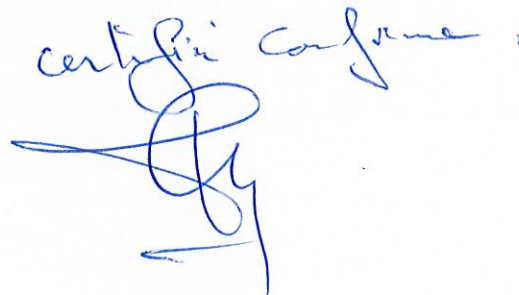 certifié conforme.